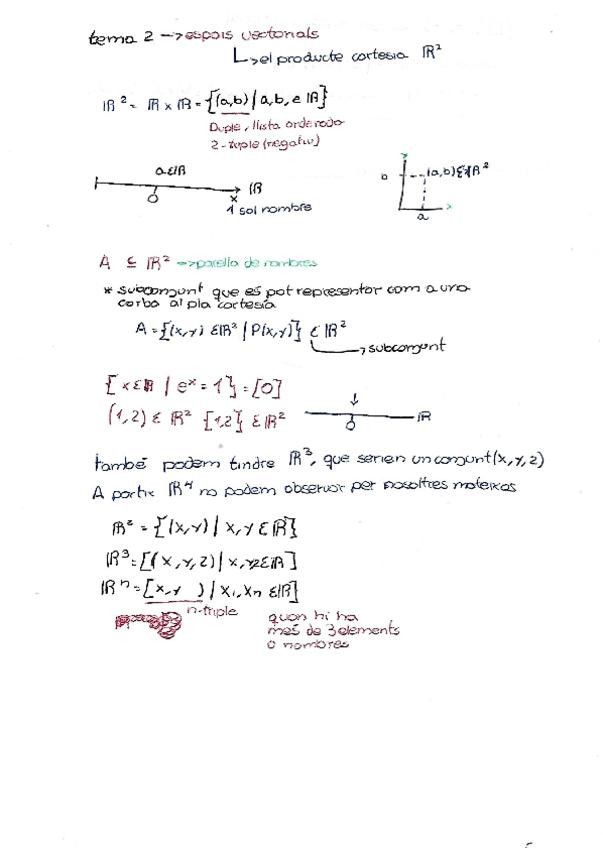 tema 2 -> espais vectorials
L> el producte cartesia ℝ²
ℝ² = ℝ x ℝ = {(a,b) | a,b, ∈ ℝ}
Duple, llista ordenada
2-tuple (negatiu)
a∈ℝ
ℝ
0
x
1 sol nombre
b
(a,b)∈ℝ²
a
A ⊆ ℝ² -> parella de nombres
* subconjunt que es pot representar com a una
corba al pla cartesià
A = {(x,y) ∈ℝ² | P(x,y)} ⊂ ℝ²
-> subconjunt
{x∈ℝ | eˣ = 1} = [0]
(1,2) ∈ ℝ² {1,2} ∈ ℝ²
ℝ
0
també podem tindre ℝ³, que serien un conjunt (x,y,z)
A partir ℝ⁴ no podem observar per nosaltres mateixos
ℝ² = {(x,y) | x,y ∈ℝ}
ℝ³ = [(x,y,z) | x,yz∈ℝ]
ℝⁿ = [x,y ) | x₁,xₙ ∈ℝ]
n-triple
quan hi ha
més de 3 elements
o nombres